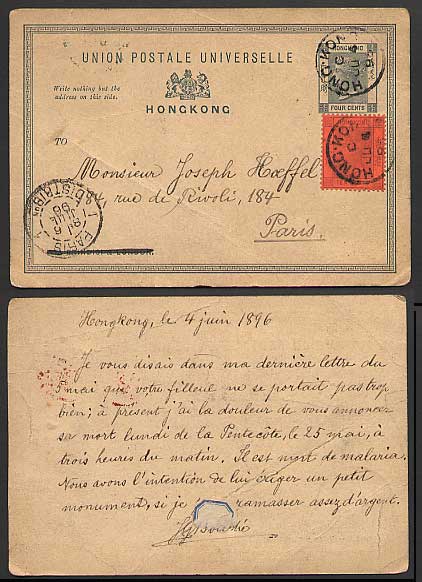 UNION POSTALE UNIVERSELLE
Write nothing but the
address on this side.
HONGKONG
HONGKONG
FOUR CENTS
HONG-KONG
HONG-KONG
TO
Monsieur Joseph Hœffel
184 rue de Rivoli, 184
Paris.
PARIS
DISTRIB
96
Hongkong, le 4 juin 1896
Je vous disais dans ma dernière lettre du
5 mai que votre filleul ne se portait pas trop
bien; à présent j'ai la douleur de vous annoncer
sa mort lundi de la Pentecôte, le 25 mai, à
trois heures du matin. Il est mort de malaria.
Nous avons l'intention de lui ériger un petit
monument, si je ramasser assez d'argent.